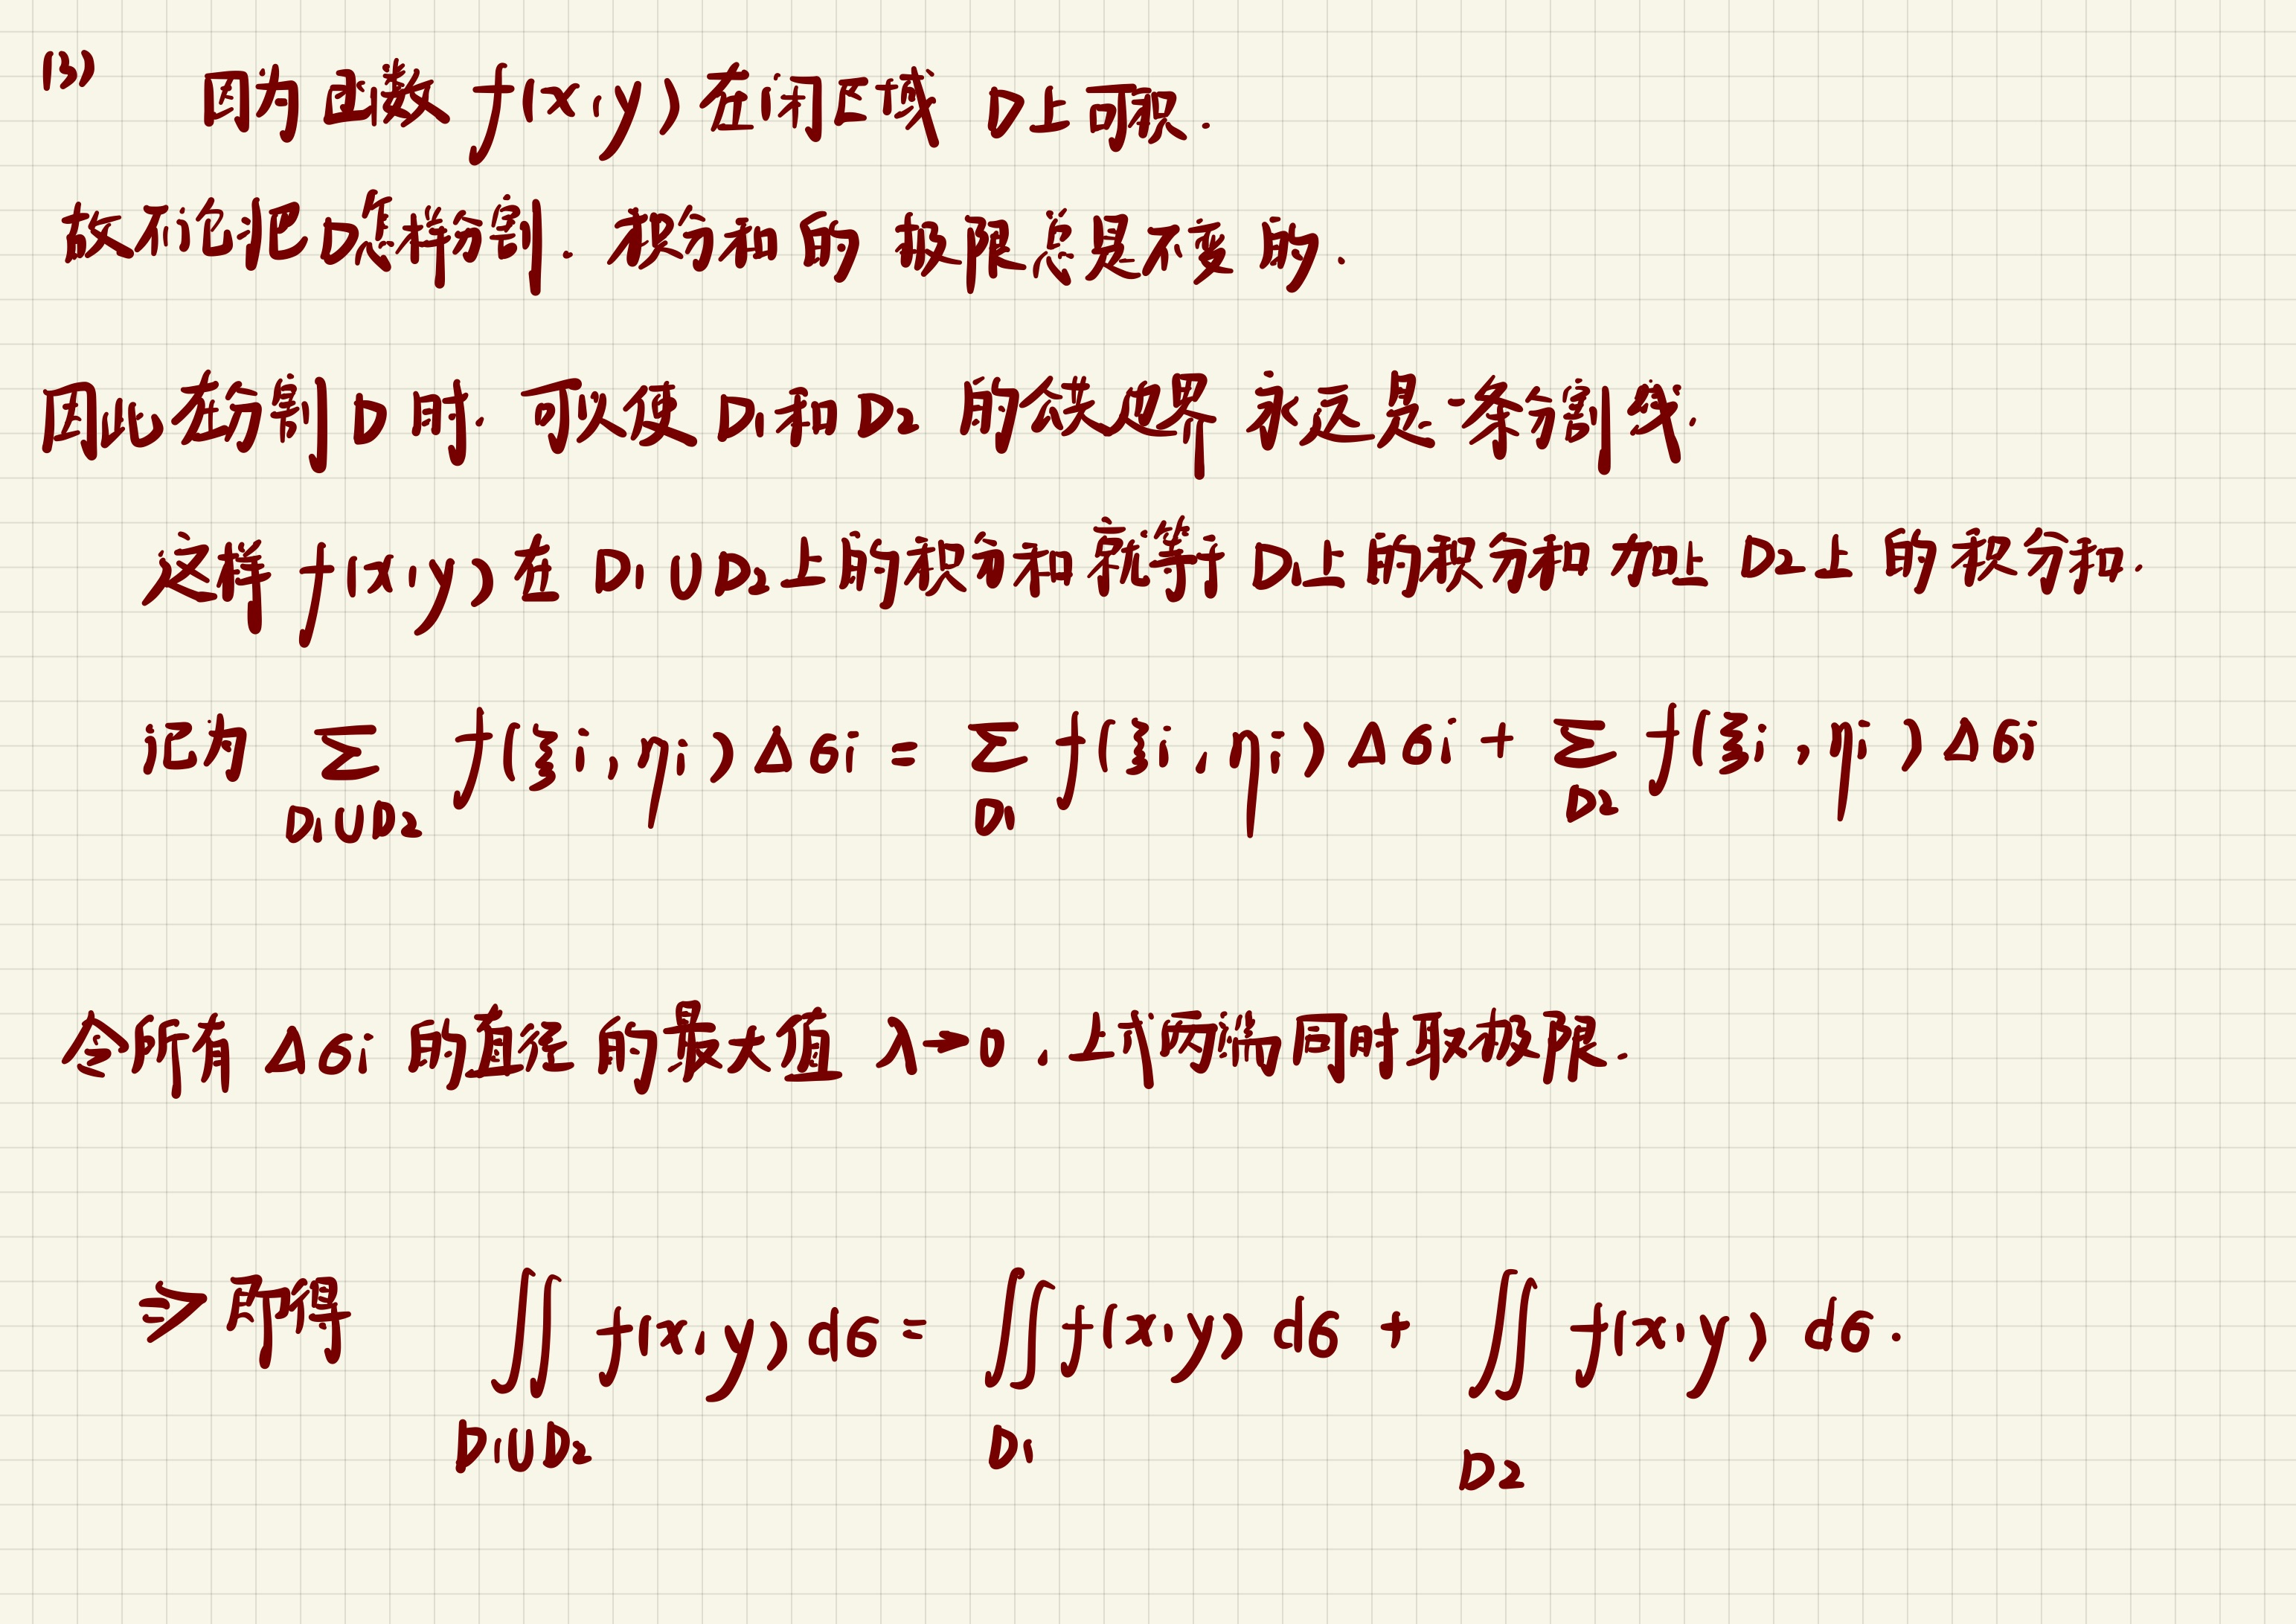 (3) 因为函数 f(x,y) 在闭区域 D上可积.
故不论把D怎样分割. 积分和的极限总是不变的.
因此在分割D时. 可以使D1和D2的公共边界永远是一条分割线.
这样 f(x,y) 在 D1∪D2上的积分和就等于D1上的积分和加上 D2上的积分和.
记为 Σ f(ξi,ηi)Δσi = Σ f(ξi,ηi)Δσi + Σ f(ξi,ηi)Δσi
D1∪D2 D1 D2
令所有 Δσi 的直径的最大值 λ→0 , 上式两端同时取极限.
⇒ 即得 ∬ f(x,y)dσ = ∬ f(x,y)dσ + ∬ f(x,y)dσ.
D1∪D2 D1 D2